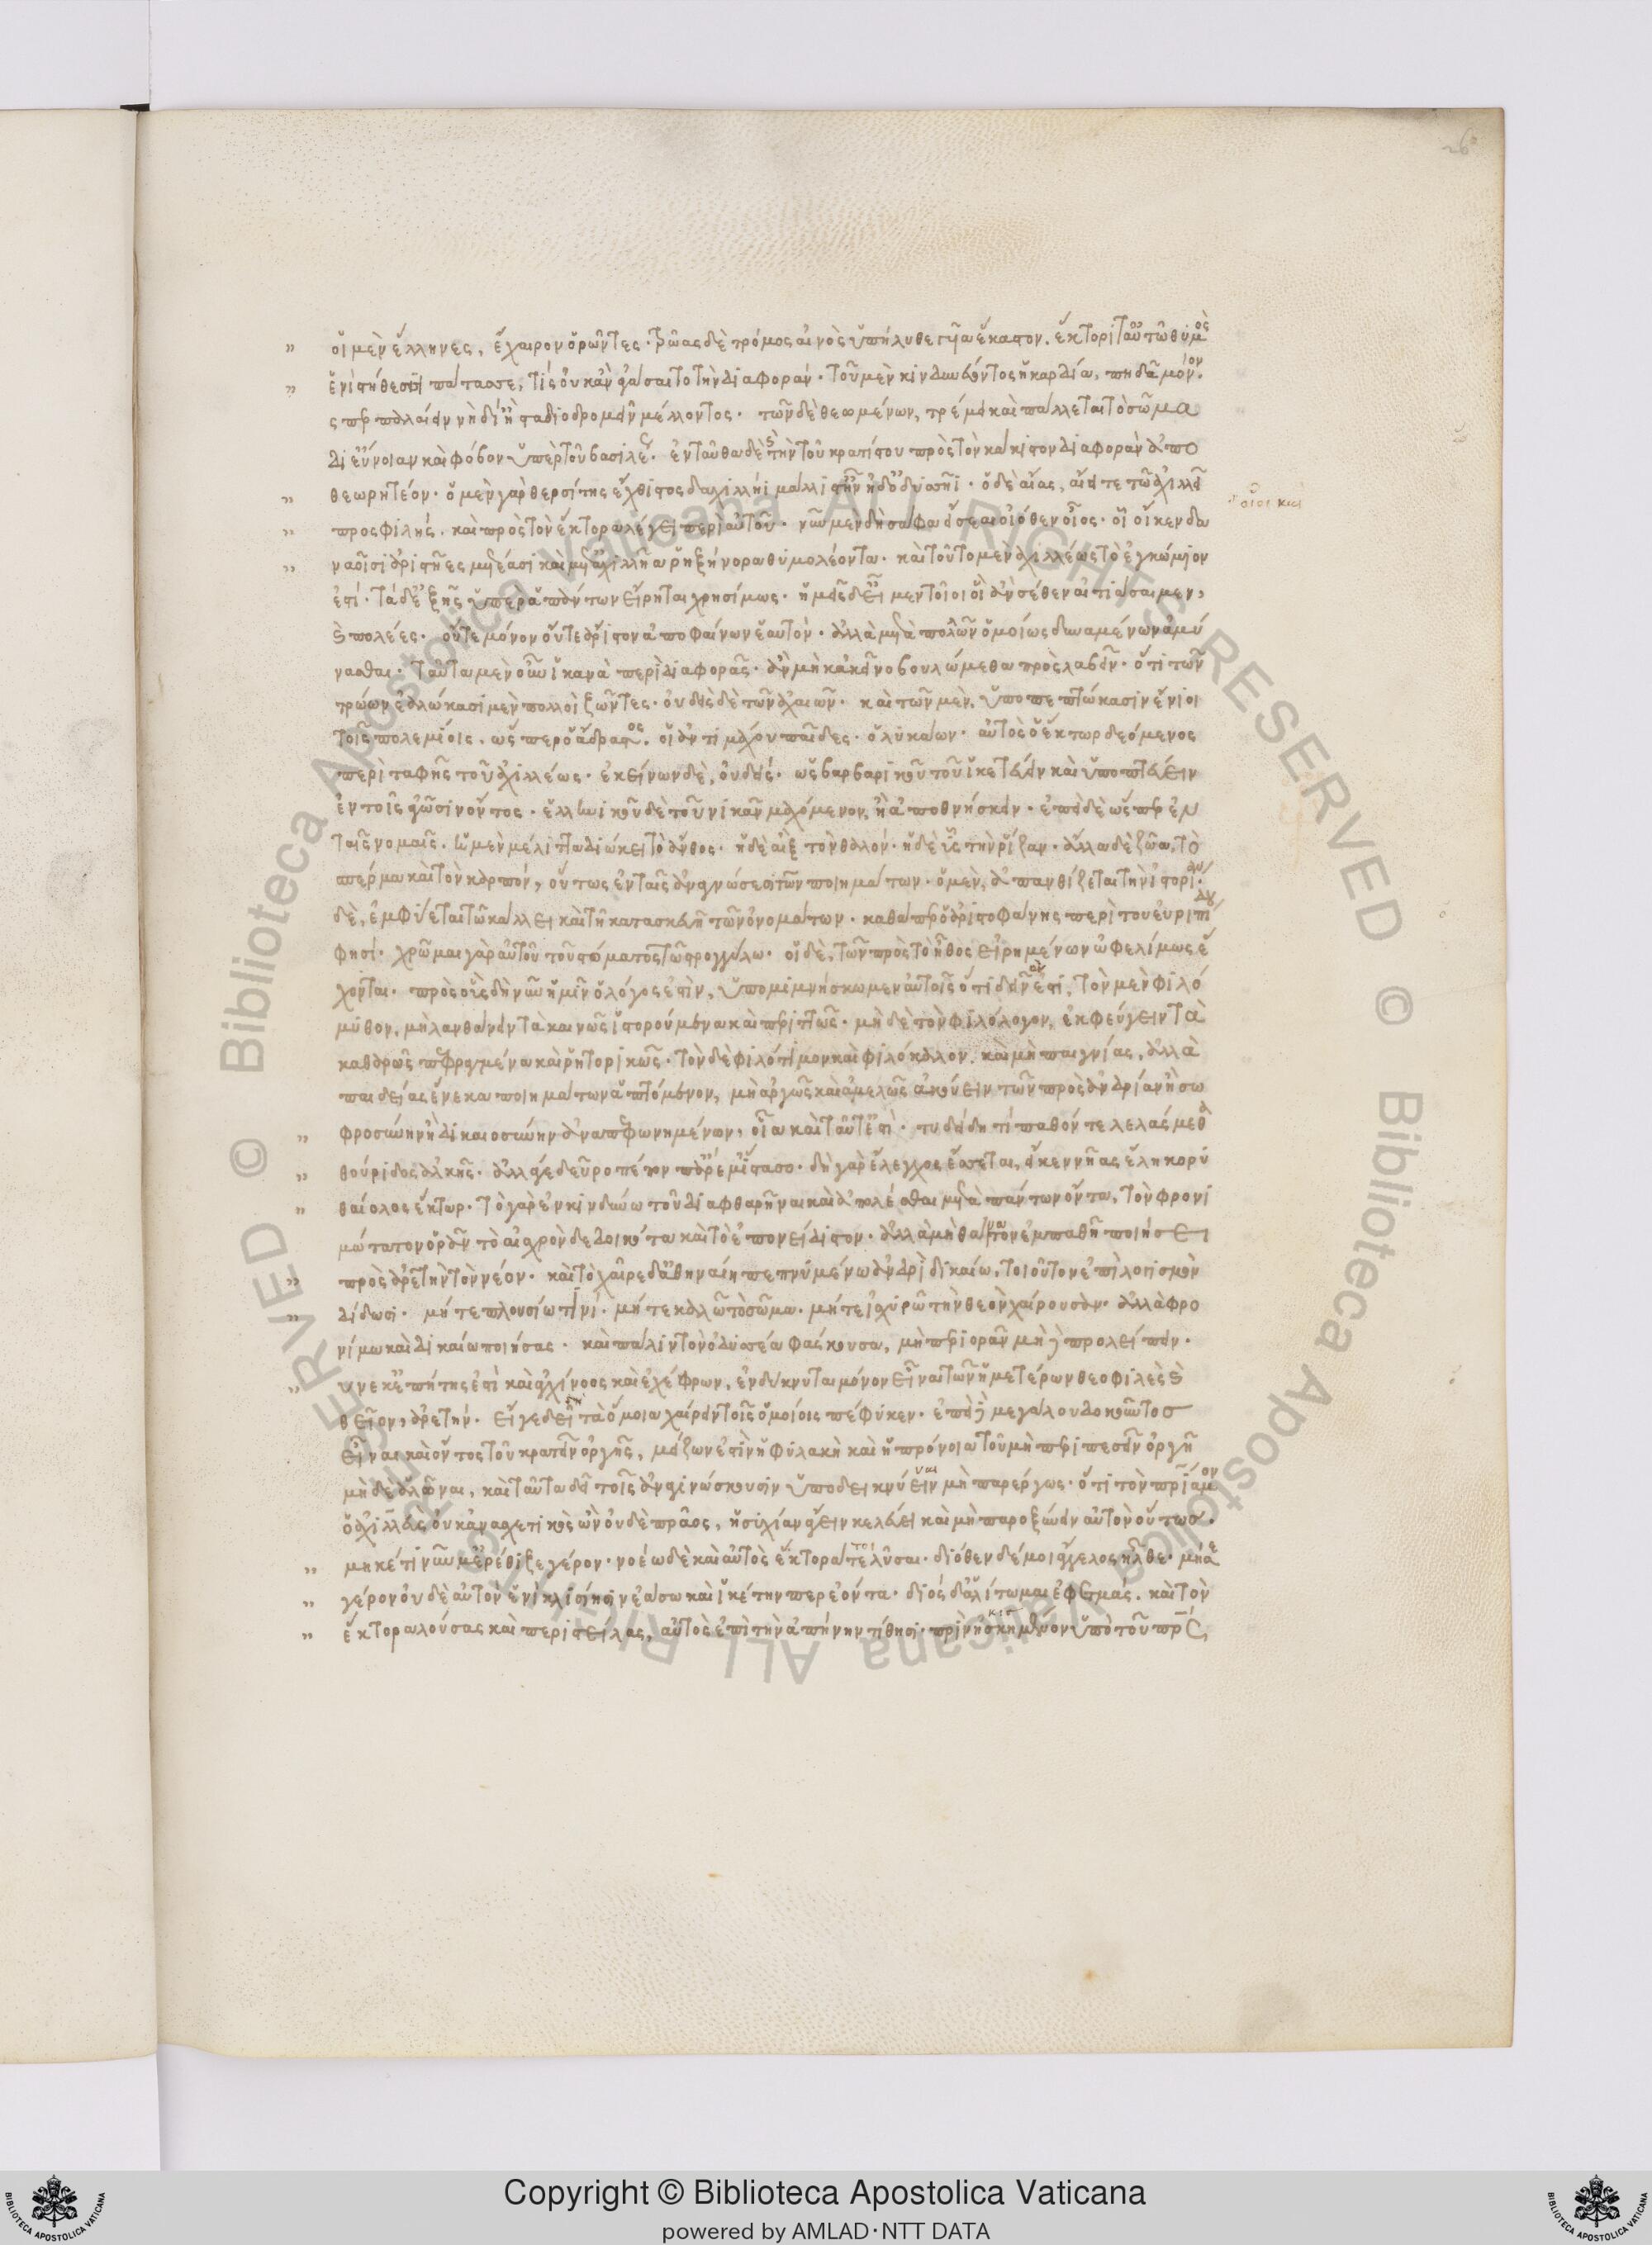 οἱ μὲν ἕλληνες, ἔχαιρον ὁρῶντες· τρῶας δὲ τρόμος αἰνὸς ὑπήλυθε γυῖα ἕκαστον. ἕκτορι τ' αὐτῶ θυμὸς
ἐνὶ στήθεσσι πάτασσε, τίς οὐκ ἂν ἀγάσαιτο τὴν διαφοράν· τοῦ μὲν κινδυνεύοντος ἡ καρδία, πηδᾶ μόνον.
ὥσπερ παλαίειν νὴ δί' ἢ σταδιοδρομεῖν μέλλοντος· τῶν δὲ θεωμένων, τρέμει καὶ πάλλεται τὸ σῶμα
δι' εὔνοιαν καὶ φόβον ὑπὲρ τοῦ βασιλέως. ἐνταῦθα δὲ καὶ τὴν τοῦ κρατίστου πρὸς τὸν κάκιστον διαφορὰν ἀπο
θεωρητέον· ὁ μὲν γὰρ θερσίτης ἔχθιστος δ' ἀχιλῆι μάλιστ' ἦν ἠδ' ὀδυσῆι· ὁ δὲ αἴας, αἰεί τε τῶ ἀχιλλεῖ
προσφιλής. καὶ πρὸς τὸν ἕκτορα λέγει περὶ αὐτοῦ· νῦν μὲν δὴ σάφα εἴσεαι οἰόθεν οἶος· οἷοι
ναοῖσι ἀριστῆες μετέασι καὶ μετ' ἀχιλλῆα ῥηξήνορα θυμολέοντα· καὶ τοῦτο μὲν ἀχιλλέως τὸ ἐγκώμιον
ἐστί· τὰ δ' ἑξῆς ὑπὲρ ἁπάντων εἴρηται χρησίμως· ἡμεῖς δ' εἰμὲν τοῖοι οἳ ἂν σέθεν ἀντιάσαιμεν,
καὶ πολέες· οὔτε μόνον οὔτε ἄριστον ἀποφαίνων ἑαυτόν· ἀλλὰ μετὰ πολλῶν ὁμοίως δυναμένων ἀμύ
νασθαι· ταῦτα μὲν οὖν ἱκανὰ περὶ διαφορᾶς· ἂν μὴ κἀκεῖνο βουλώμεθα προσλαβεῖν· ὅτι τῶν
τρώων ἑαλώκασι μὲν πολλοὶ ζῶντες· οὐδεὶς δὲ τῶν ἀχαιῶν· καὶ τῶν μὲν, ὑποπεπτώκασιν ἔνιοι
τοῖς πολεμίοις. ὥσπερ ὁ ἄδραστος. οἱ ἀντιμάχου παῖδες· ὁ λυκάων· αὐτὸς ὁ ἕκτωρ δεόμενος
περὶ ταφῆς τοῦ ἀχιλλέως· ἐκείνων δὲ, οὐδείς· ὡς βαρβαρικοῦ τοῦ ἱκετεύειν καὶ ὑποπίπτειν
ἐν τοῖς ἀγῶσιν ὄντος· ἑλληνικοῦ δὲ τοῦ νικᾶν μαχόμενον, ἢ ἀποθνήσκειν· ἐπεὶ δὲ ὥσπερ ἐν
ταῖς νομαῖς. ἡ μὲν μέλιττα διώκει τὸ ἄνθος· ἡ δὲ αἲξ τὸν θαλλόν· ἡ δὲ ὗς τὴν ῥίζαν· ἄλλα δὲ ζῶα, τὸ
σπέρμα καὶ τὸν καρπόν, οὕτως ἐν ταῖς ἀναγνώσεσι τῶν ποιημάτων· ὁ μὲν, ἀπανθίζεται τὴν ἱστορίαν·
δὲ, ἐμφύεται τῶ κάλλει καὶ τῆ κατασκευῆ τῶν ὀνομάτων· καθάπερ ὁ ἀριστοφάνης περὶ του εὐριπίδου
φησί· χρῶμαι γὰρ αὐτοῦ τοῦ στόματος τῶ στρογγύλω· οἱ δὲ, τῶν πρὸς τὸ ἦθος εἰρημένων ὠφελίμως ἔ
χονται· πρὸς οἷς δὴ νῦν ἡμῖν ὁ λόγος ἐστὶν, ὑπομιμνήσκωμεν αὐτοῖς ὅτι δεινόν ἐστι, τὸν μὲν φιλό
μυθον, μὴ λανθάνειν τὰ καινῶς ἱστορούμενα καὶ περιττῶς· μὴ δὲ τὸν φιλόλογον, ἐκφεύγειν τὰ
καθαρῶς πεφρασμένα καὶ ῥητορικῶς· τὸν δὲ φιλότιμον καὶ φιλόκαλον. καὶ μὴ παιγνίας, ἀλλὰ
παιδείας ἕνεκα ποιημάτων ἁπτόμενον, μὴ ἀργῶς καὶ ἀμελῶς ἀκούειν τῶν πρὸς ἀνδρίαν ἢ σω
φροσύνην ἢ δικαιοσύνην ἀναπεφωνημένων, οἷα καὶ ταῦτ' ἐστι· τυδείδη τί παθόντε λελάσμεθα
θούριδος ἀλκῆς· ἀλλ' ἄγε δεῦρο πέπον παρ' ἔμ' ἵστασο· δὴ γὰρ ἔλεγχος ἔσσεται, εἴ κεν νῆας ἕλη κορυ
θαίολος ἕκτωρ· τὸ γὰρ ἐν κινδύνω τοῦ διαφθαρῆναι καὶ ἀπολέσθαι μετὰ πάντων ὄντα, τὸν φρονι
μώτατον ὁρᾶν τὸ αἰσχρὸν δεδοικότα καὶ τὸ ἐπονείδιστον· ἀλλὰ μὴ θάνατον ἐμπαθῆ ποιήσει
πρὸς ἀρετὴν τὸν νέον· καὶ τὸ χαῖρε δ' ἀθηναίη πεπνυμένω ἀνδρὶ δικαίω, τοιοῦτον ἐπιλογισμὸν
δίδωσι· μήτε πλουσίω τινί· μήτε καλῶ τὸ σῶμα· μήτε ἰσχυρῶ τὴν θεὸν χαίρουσαν· ἀλλὰ φρο
νίμω καὶ δικαίω ποιήσας· καὶ πάλιν τὸν ὀδυσσέα φάσκουσα, μὴ περιορᾶν μὴ δὲ προλείπειν·
οὕνεκ' ἐπητής ἐστι καὶ ἀγχίνοος καὶ ἐχέφρων, ἐνδείκνυται μόνον εἶναι τῶν ἡμετέρων θεοφιλὲς καὶ
θεῖον, ἀρετήν· εἴγε δεῖ τὰ ὅμοια χαίρειν τοῖς ὁμοίοις πέφυκεν· ἐπεὶ δὲ μεγάλου δοκοῦντος
εἶναι καὶ ὄντος τοῦ κρατεῖν ὀργῆς, μείζων ἐστὶν ἡ φυλακὴ καὶ ἡ πρόνοια τοῦ μὴ περιπεσεῖν ὀργῆ
μὴ δὲ ἁλῶναι, καὶ ταῦτα δεῖ τοῖς ἀναγινώσκουσιν ὑποδεικνύειν μὴ παρέργως· ὅτι τὸν πρίαμον
ὁ ἀχιλλεὺς οὐκ ἀνασχετικὸς ὢν οὐδὲ πρᾶος, ἡσυχίαν ἄγειν κελεύει καὶ μὴ παροξύνειν αὐτὸν οὕτως.
μηκέτι νῦν μ' ἐρέθιζε γέρον· νοέω δὲ καὶ αὐτὸς ἕκτορά τοι λῦσαι· διόθεν δέ μοι ἄγγελος ἦλθε· μή σε
γέρον οὐδὲ αὐτὸν ἐνὶ κλισίησιν ἐάσω καὶ ἱκέτην περ ἐόντα· διὸς δ' ἀλίτωμαι ἐφετμάς. καὶ τὸν
ἕκτορα λούσας καὶ περιστείλας, αὐτὸς ἐπὶ τὴν ἀπήνην τίθησι· πρὶν ἠκισμένον ὑπὸ τοῦ πρς
Copyright © Biblioteca Apostolica Vaticana
powered by AMLAD·NTT DATA